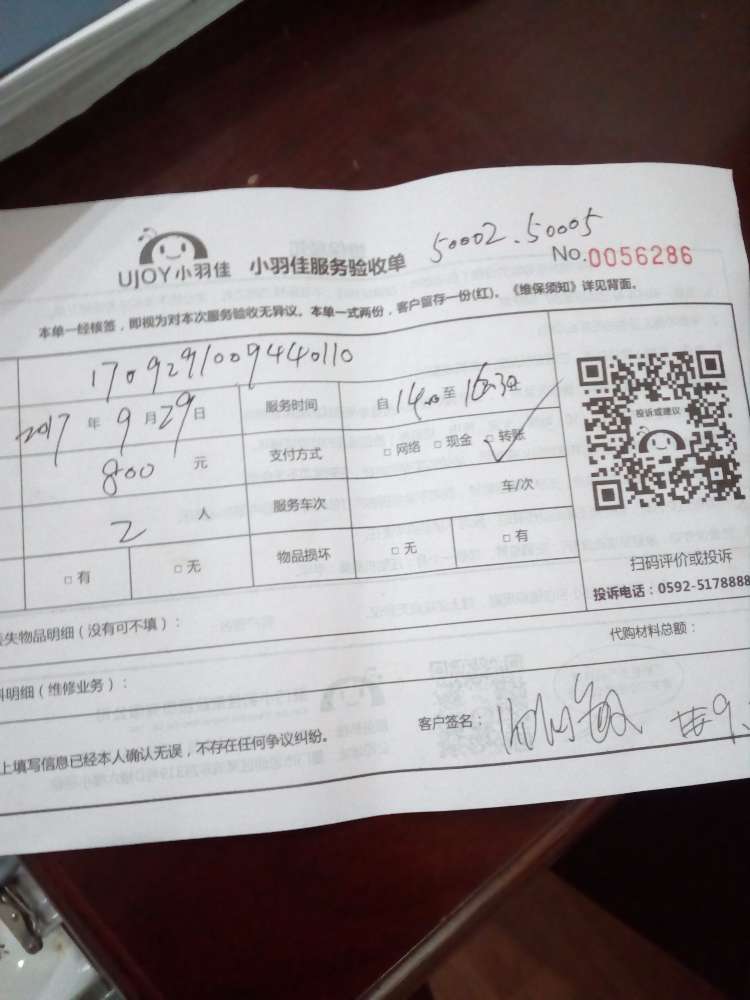 50002.50005
UJOY小羽佳 小羽佳服务验收单
No.0056286
本单一经核签，即视为对本次服务验收无异议。本单一式两份，客户留存一份(红)。《维保须知》详见背面。
1709291009440110
2017年9月29日 服务时间 自14:00至16:30
800元 支付方式 □网络 □现金 □转账
2人 服务车次 车/次
□有 □无 物品损坏 □无 □有
投诉或建议
扫码评价或投诉
投诉电话：0592-5178888
失物品明细（没有可不填）：
代购材料总额：
料明细（维修业务）：
上填写信息已经本人确认无误，不存在任何争议纠纷。
客户签名：